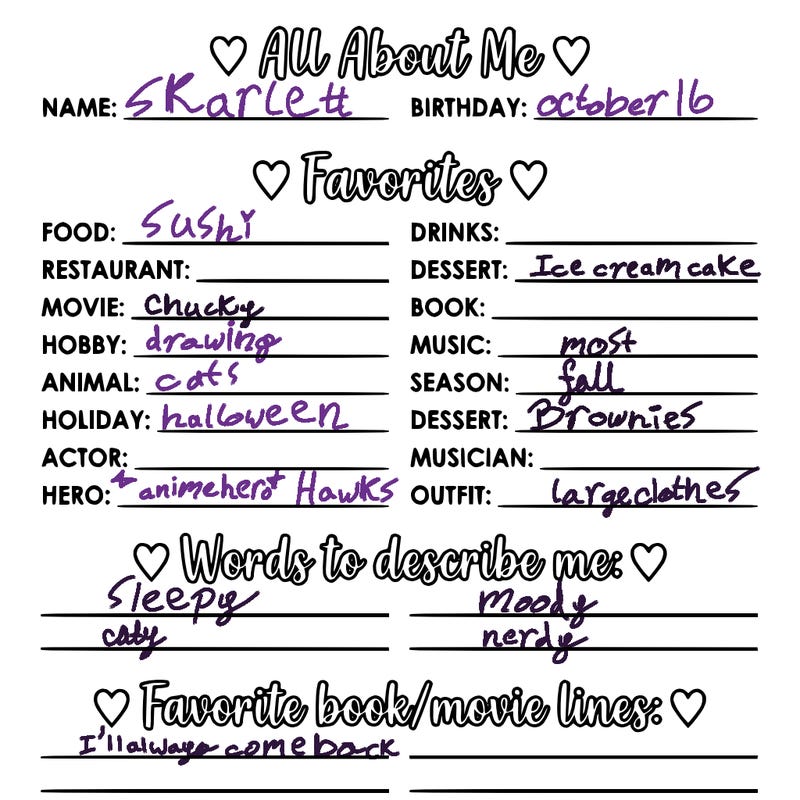 All About Me
NAME: Skarlett BIRTHDAY: october 16
Favorites
FOOD: Sushi DRINKS:
RESTAURANT: DESSERT: Ice cream cake
MOVIE: Chucky BOOK:
HOBBY: drawing MUSIC: most
ANIMAL: cats SEASON: fall
HOLIDAY: halloween DESSERT: Brownies
ACTOR: MUSICIAN:
HERO: *anime hero* Hawks OUTFIT: large clothes
Words to describe me:
Sleepy moody
caty nerdy
Favorite book/movie lines:
I'll always come back